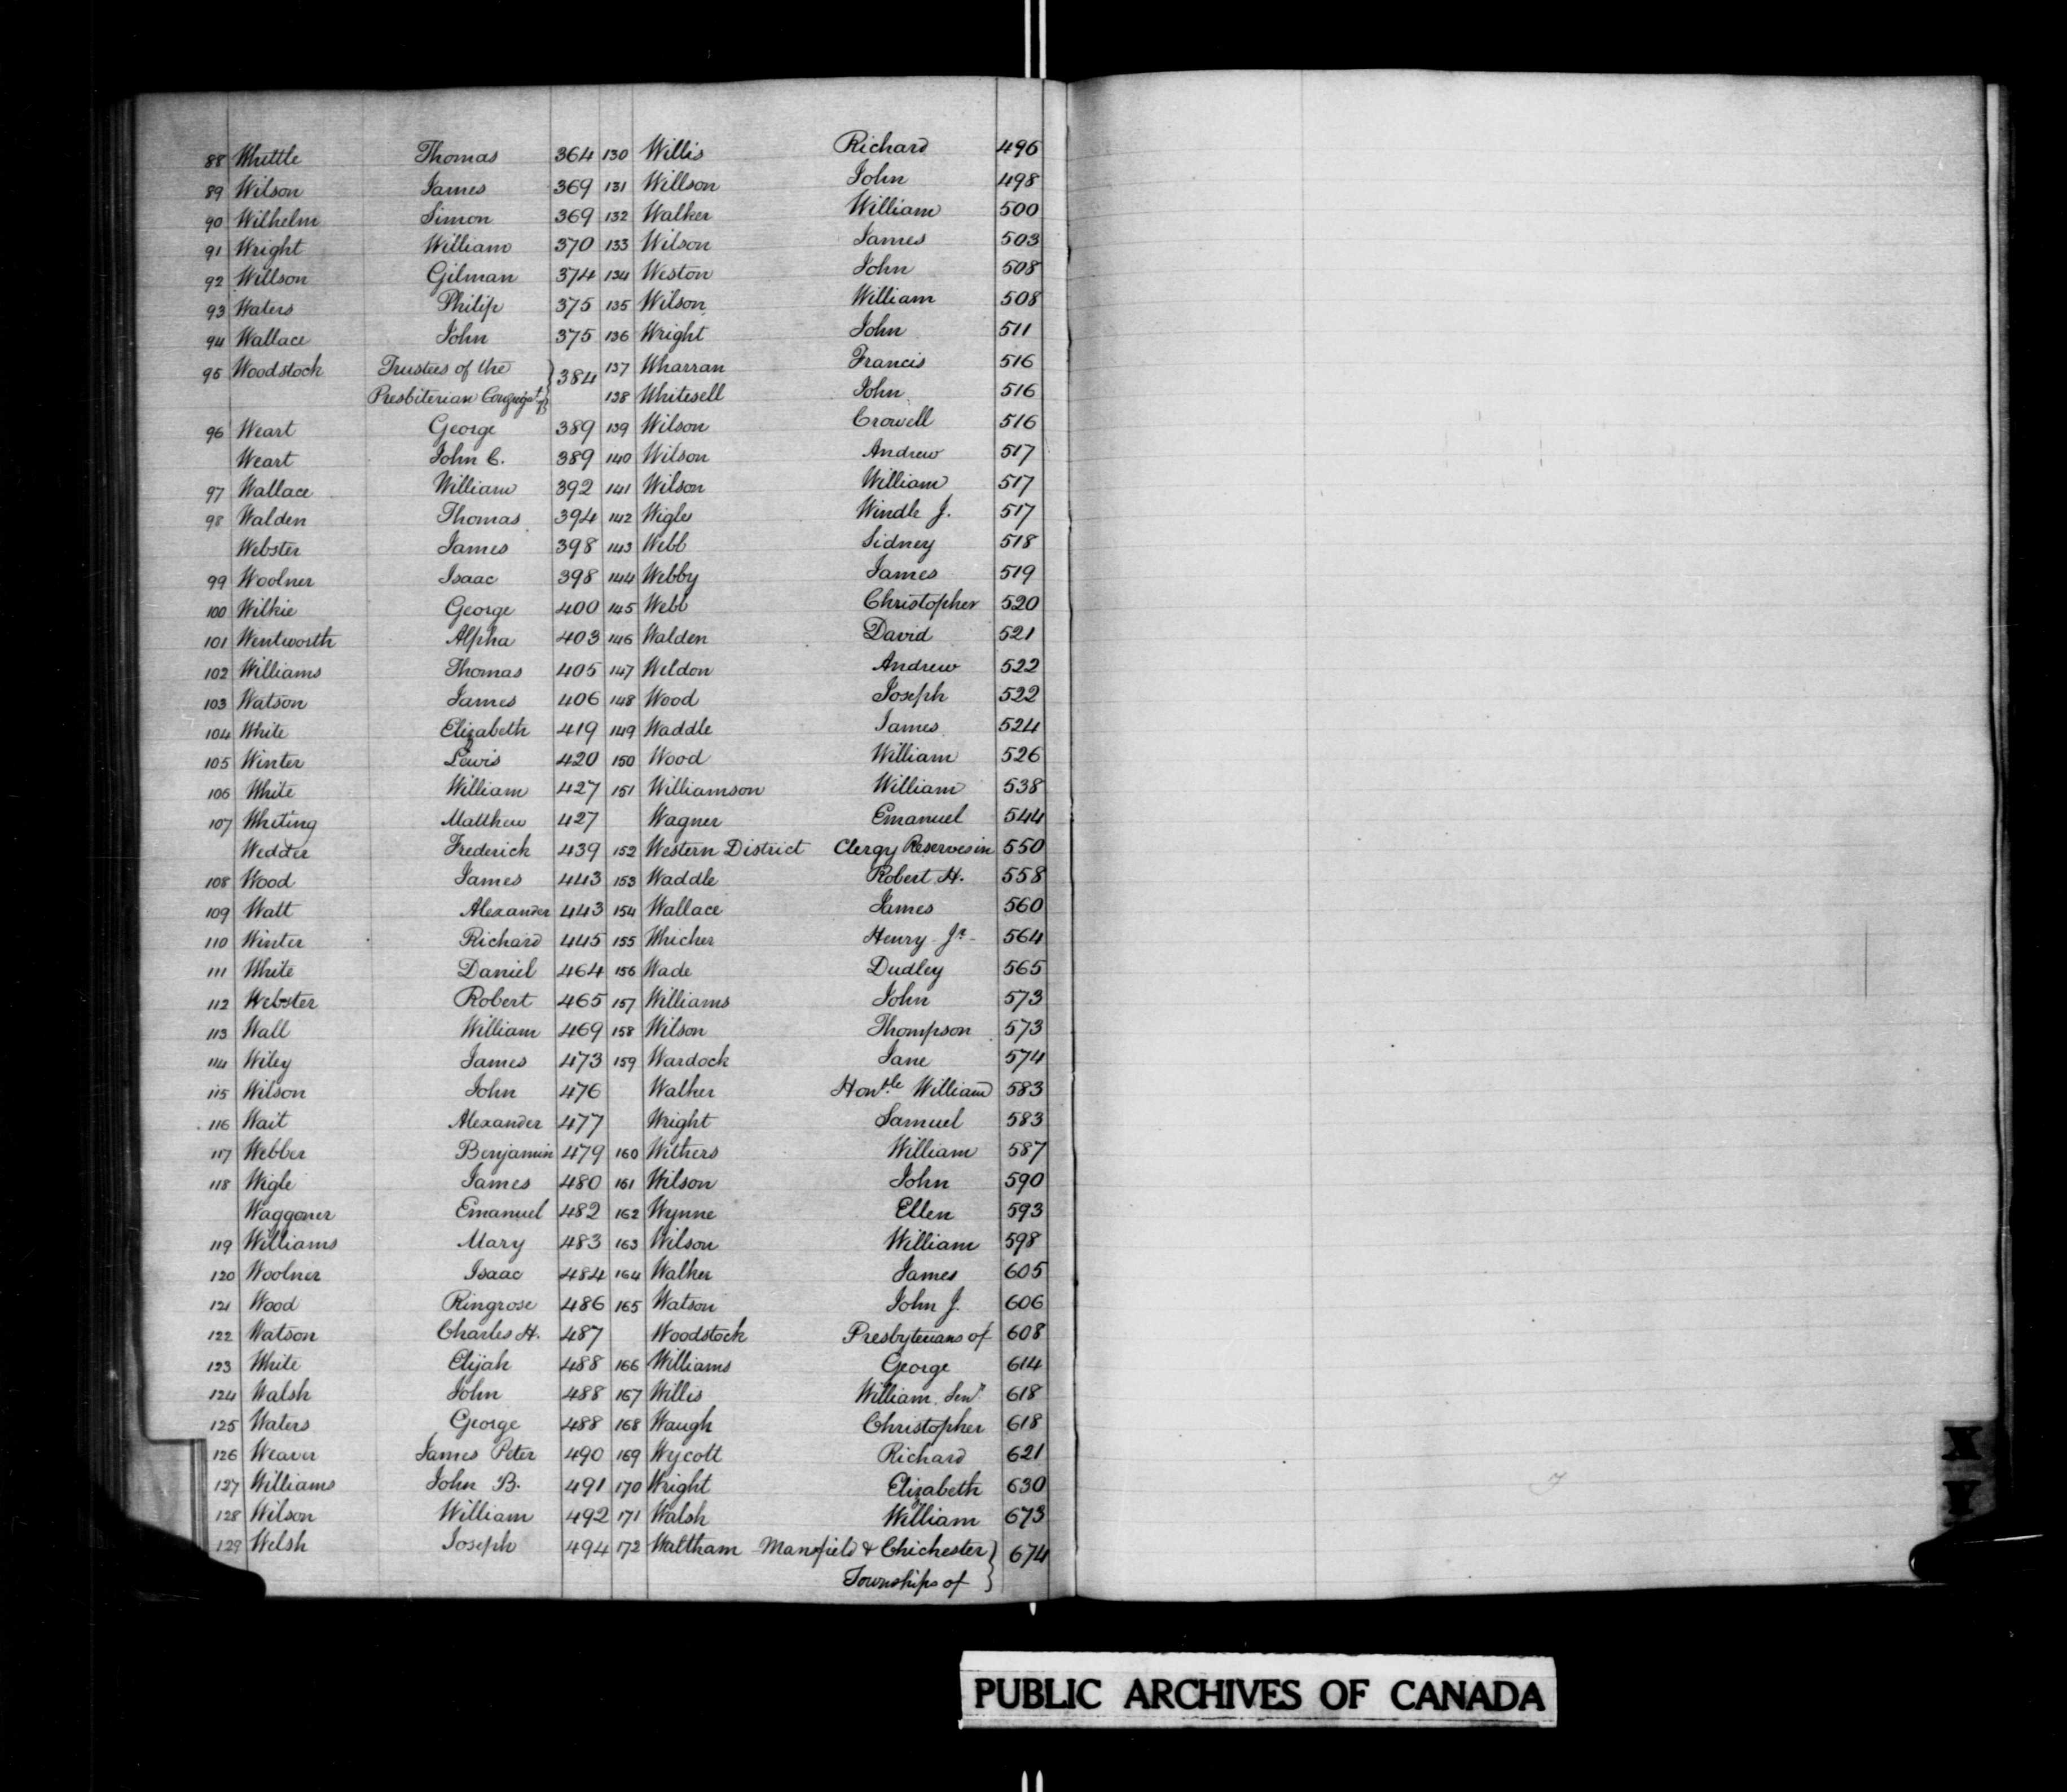 88 Whittle Thomas 364
89 Wilson James 369
90 Wilhelm Simon 369
91 Wright William 370
92 Willson Gilman 374
93 Waters Philip 375
94 Wallace John 375
95 Woodstock Trustees of the
Presbiterian Congregat. of } 384
96 Weart George 389
Weart John C. 389
97 Wallace William 392
98 Walden Thomas 394
Webster James 398
99 Woolner Isaac 398
100 Wilkie George 400
101 Wentworth Alpha 403
102 Williams Thomas 405
103 Watson James 406
104 White Elizabeth 419
105 Winter Lewis 420
106 White William 427
107 Whiting Matthew 427
Wedder Frederick 439
108 Wood James 443
109 Watt Alexander 443
110 Winter Richard 445
111 White Daniel 464
112 Webster Robert 465
113 Wall William 469
114 Wiley James 473
115 Wilson John 476
116 Wait Alexander 477
117 Webber Benjamin 479
118 Wigle James 480
Waggoner Emanuel 482
119 Williams Mary 483
120 Woolner Isaac 484
121 Wood Ringrose 486
122 Watson Charles H. 487
123 White Elijah 488
124 Walsh John 488
125 Waters George 488
126 Weaver James Peter 490
127 Williams John B. 491
128 Wilson William 492
129 Welsh Joseph 494
130 Willis Richard 496
131 Willson John 498
132 Walker William 500
133 Wilson James 503
134 Weston John 508
135 Wilson William 508
136 Wright John 511
137 Wharran Francis 516
138 Whitesell John 516
139 Wilson Crowell 516
140 Wilson Andrew 517
141 Wilson William 517
142 Wigle Windle J. 517
143 Webb Sidney 518
144 Webby James 519
145 Webb Christopher 520
146 Walden David 521
147 Weldon Andrew 522
148 Wood Joseph 522
149 Waddle James 524
150 Wood William 526
151 Williamson William 538
Wagner Emanuel 544
152 Western District Clergy Reserves in 550
153 Waddle Robert H. 558
154 Wallace James 560
155 Whicher Henry Jr. 564
156 Wade Dudley 565
157 Williams John 573
158 Wilson Thompson 573
159 Wardock Jane 574
Walker Honble William 583
Wright Samuel 583
160 Withers William 587
161 Wilson John 590
162 Wynne Ellen 593
163 Wilson William 598
164 Walker James 605
165 Watson John J. 606
Woodstock Presbyterians of 608
166 Williams George 614
167 Willis William Senr 618
168 Waugh Christopher 618
169 Wycott Richard 621
170 Wright Elizabeth 630
171 Walsh William 673
172 Waltham Mansfield & Chichester
Townships of } 674
X
Y
PUBLIC ARCHIVES OF CANADA